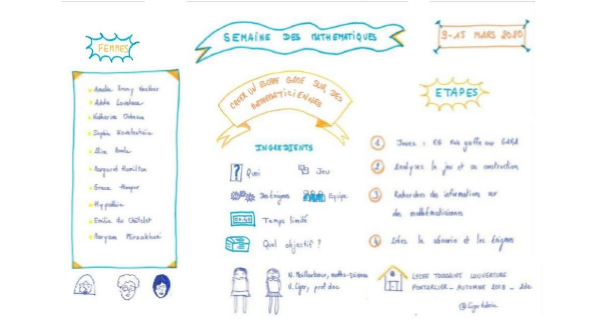 FEMMES
Amalie Emmy Noether
Adda Lovelace
Katherine Johnson
Sophie Kovalevskaïa
Alice Boole
Margaret Hamilton
Grace Hopper
Hypathie
Emilie du Châtelet
Maryam Mirzakhani
SEMAINE DES MATHEMATIQUES
CRÉER UN ESCAPE GAME SUR DES
MATHEMATICIENNES
INGREDIENTS
? Quoi
Jeu
Des énigmes
Equipe
Temps limité
Quel objectif ?
prof doc
9-15 MARS 2020
ETAPES
1 Jouez :
2 Analysez le jeu et sa construction
3 Recherchez des informations sur
des mathématiciennes
4 Créez le scénario et les énigmes
LYCEE TOUSSAINT LOUVERTURE
PONTARLIER _ AUTOMNE 2019 _ 2de